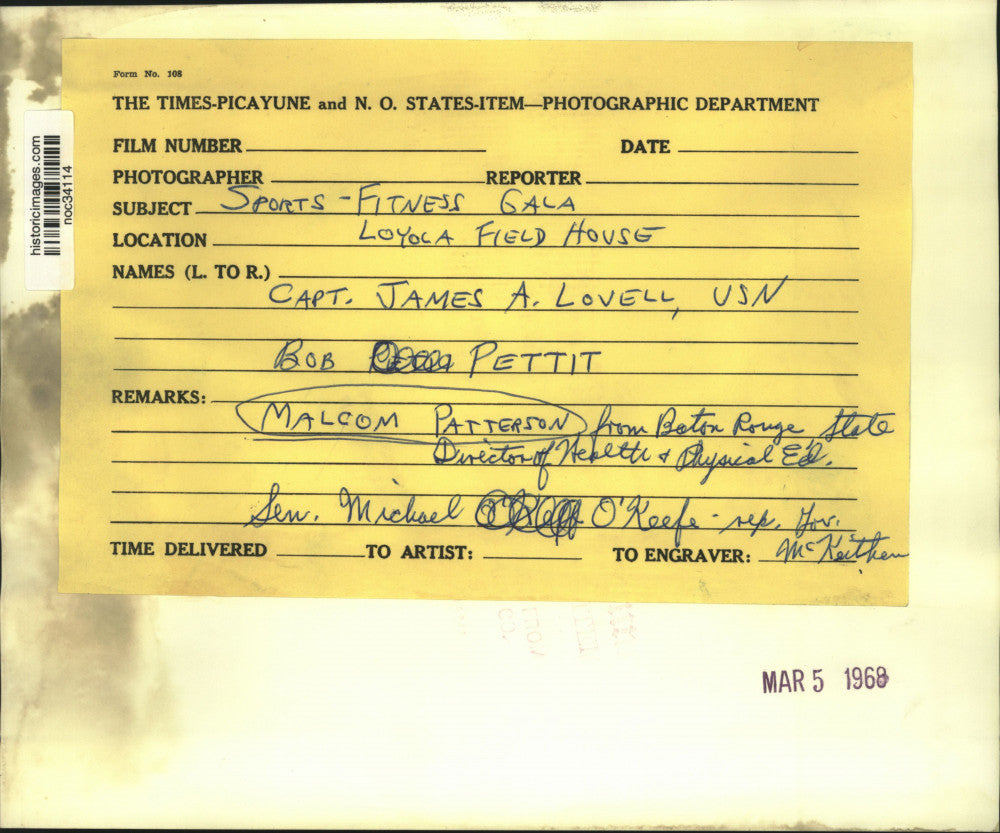 Form No. 108
THE TIMES-PICAYUNE and N. O. STATES-ITEM—PHOTOGRAPHIC DEPARTMENT
FILM NUMBER
DATE
PHOTOGRAPHER
REPORTER
SUBJECT SPORTS - FITNESS GALA
LOCATION LOYOLA FIELD HOUSE
NAMES (L. TO R.)
CAPT. JAMES A. LOVELL, USN
BOB PETTIT
REMARKS:
MALCOM PATTERSON from Baton Rouge State
Director of Health & Physical Ed.
Sen. Michael O'Keefe - rep. Gov.
McKeithen
TIME DELIVERED TO ARTIST: TO ENGRAVER:
historicimages.com
noc34114
MAR 5 1968